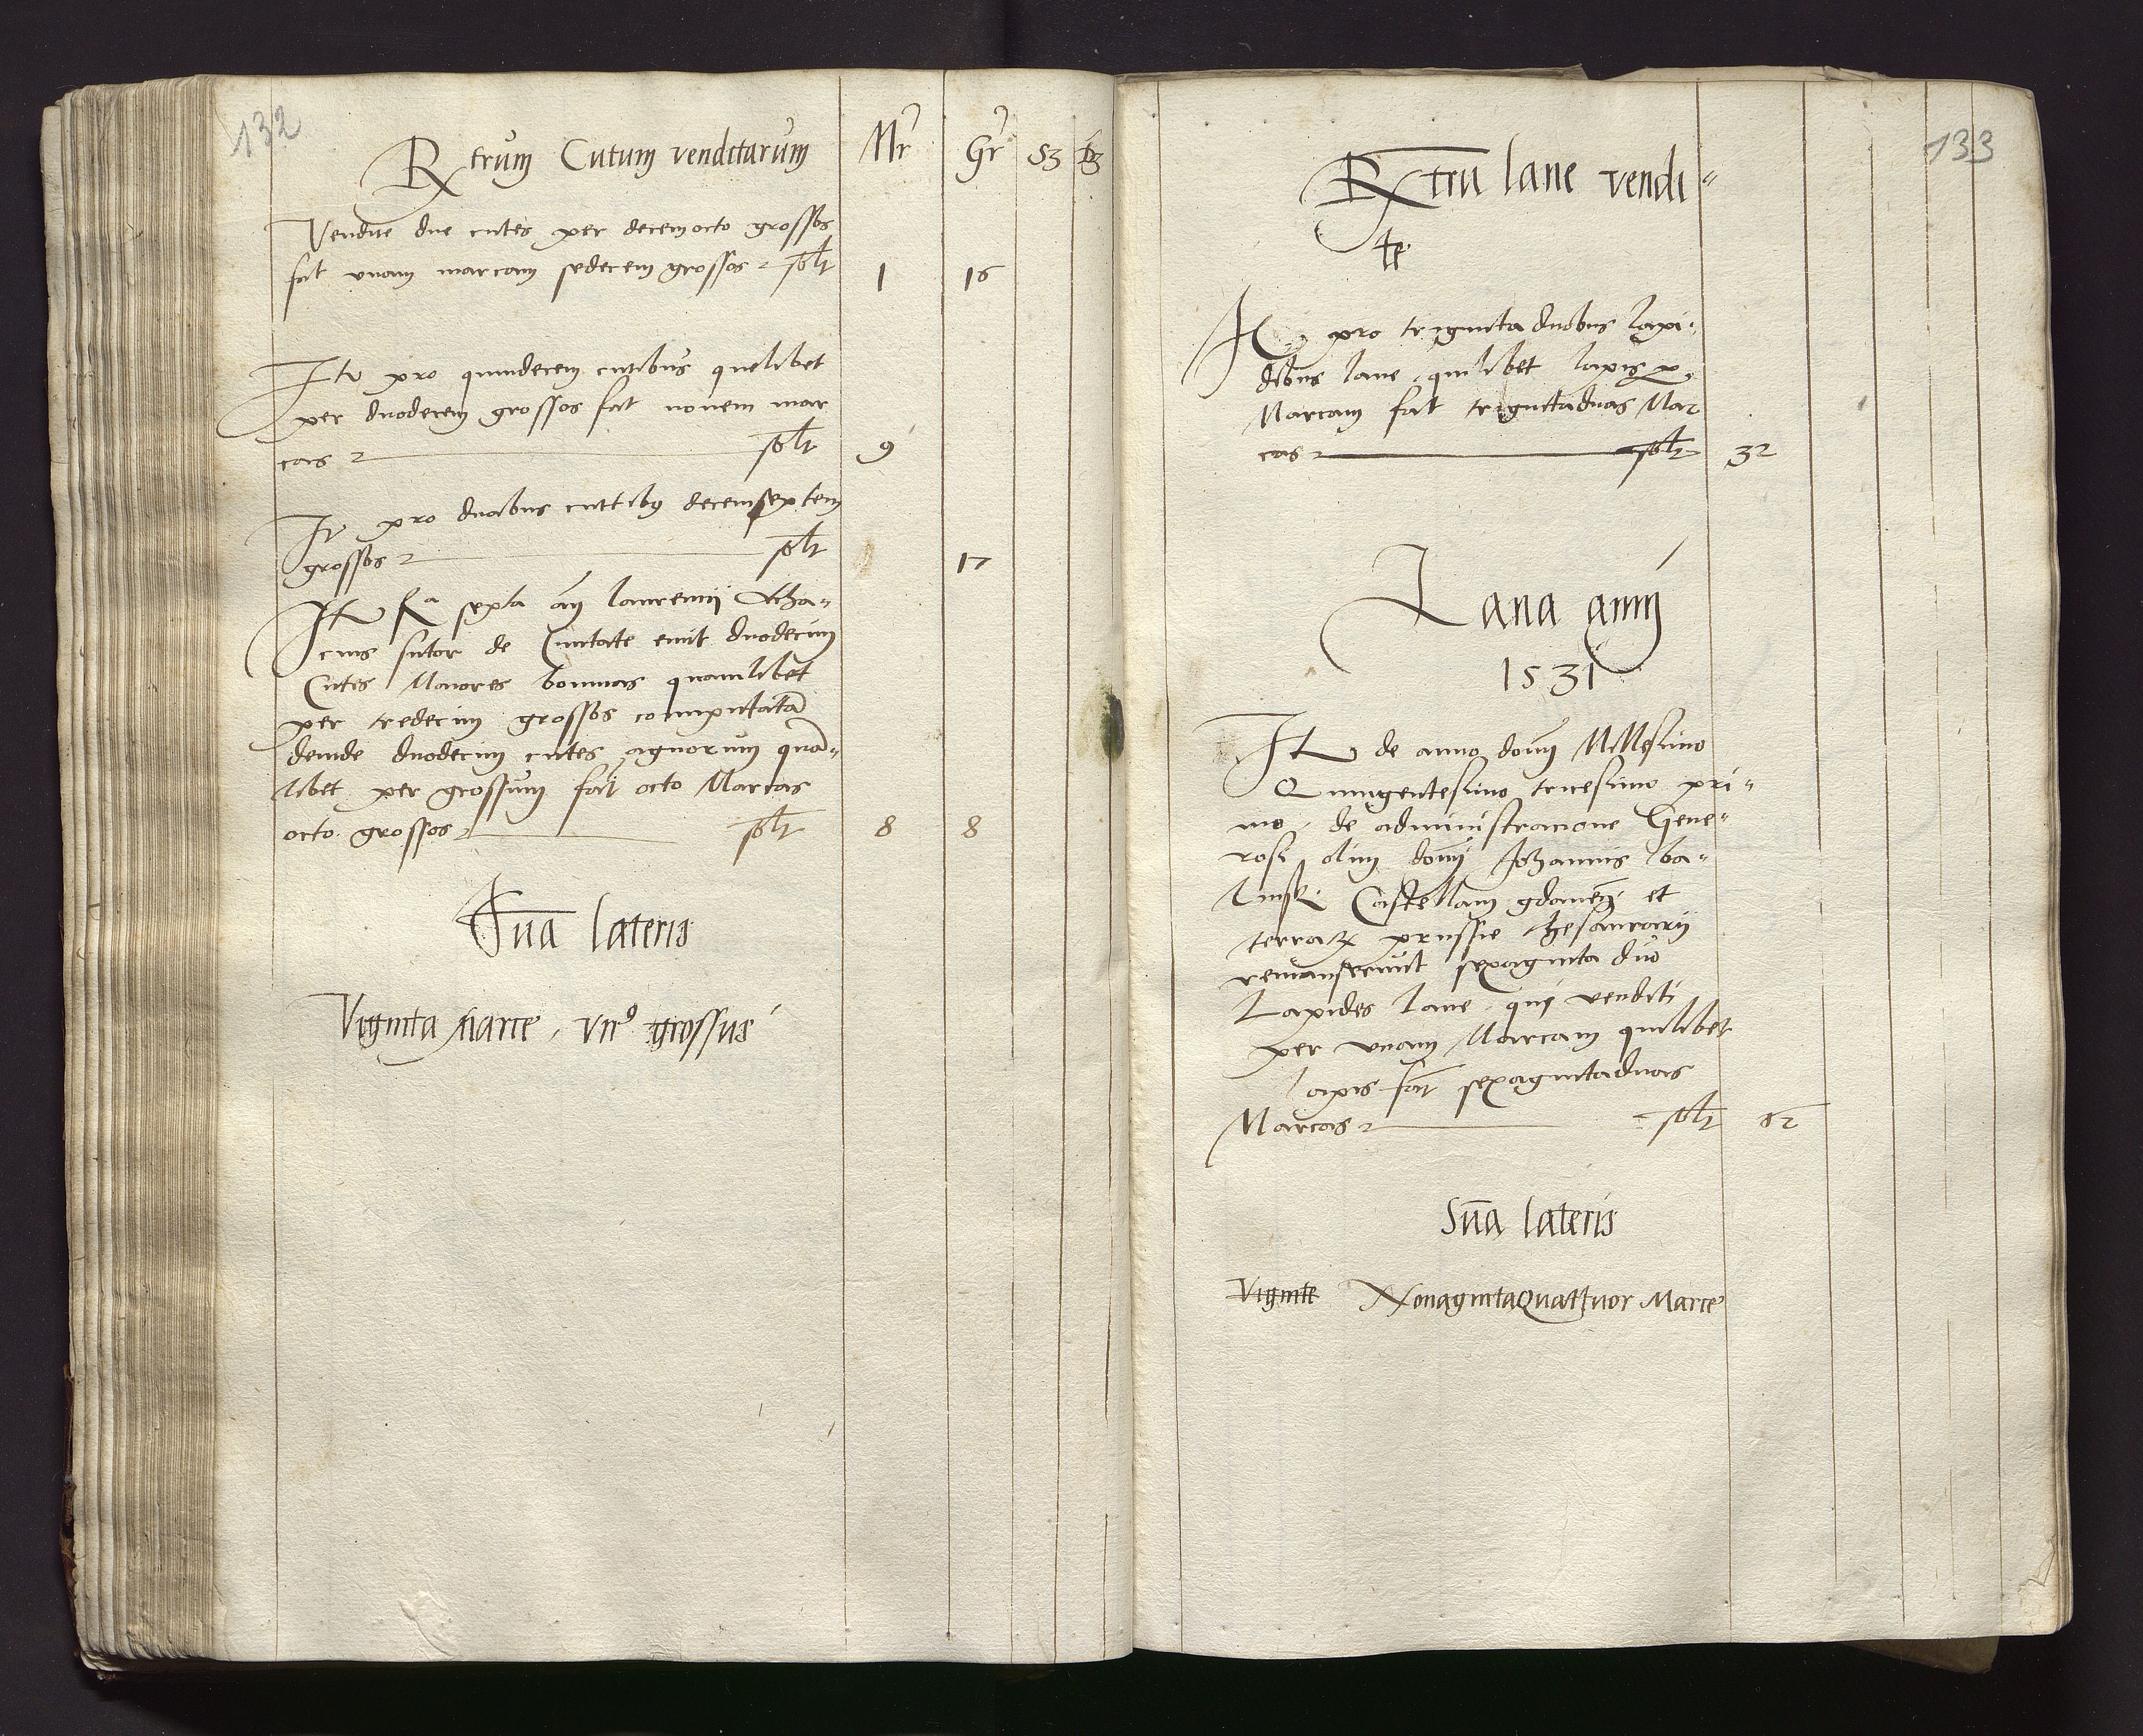 132
Rxtrum Cutum venditarum Mr Gr S3 d3
Vendite due cutes per decemocto grossos
fat vnam marcam sedecem grossos solt 1 16
Itm pro quindecem cutibus quelibet
per duodecem grossos fat novem mar
cas solt 9
It pro duabus cuttibus decemseptem
grossos solt 17
Itm fa sexta an laurentij
cius sutor de Civitate emit duodecim
Cutes Maiores bovinas quamlibet
per tredecim grossos computata
deinde duodecim cutes agnorum qua-
libet per grossum fat octo Marcas
octo grossos solt 8 8
Sua lateris
Viginta Marce, vn9 grossus
133
Rxtru lane vendi-
te
Itm pro triginta duobus lapi-
dibus lane quilibet lapis p
Marcam fat trigintaduas Mar
cas solt 32
Lana anni
1531
Itm de anno domi Millesimo
Quingentesimo tricesimo pri-
mo de administracione Gene-
rosi olim domi Johannis ba-
linski Castellani gdanen et
terrarum prussie thesaurarij
remanserunt sexaginta duo
Lapides lane qui venditi
per vnam Marcam quilibet
lapis fat sexagintaduas
Marcas solt 62
Sua lateris
Viginte NonagintaQuattuor Marce